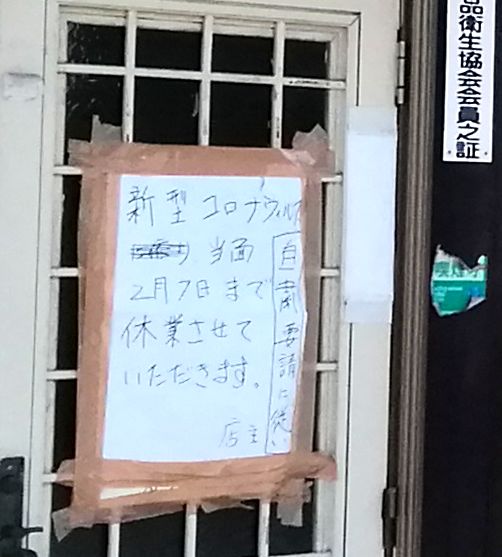 新型コロナウィルス
当面
2月7日まで
休業させて
いただきます。
店主
自粛要請に従い
品衛生協会会員之証
喫煙可